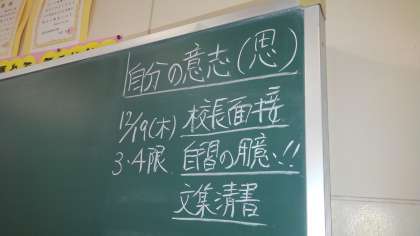 自分の意志(恩)
12/19(木) 校長面接
3・4限 自習の臆!!
文集清書